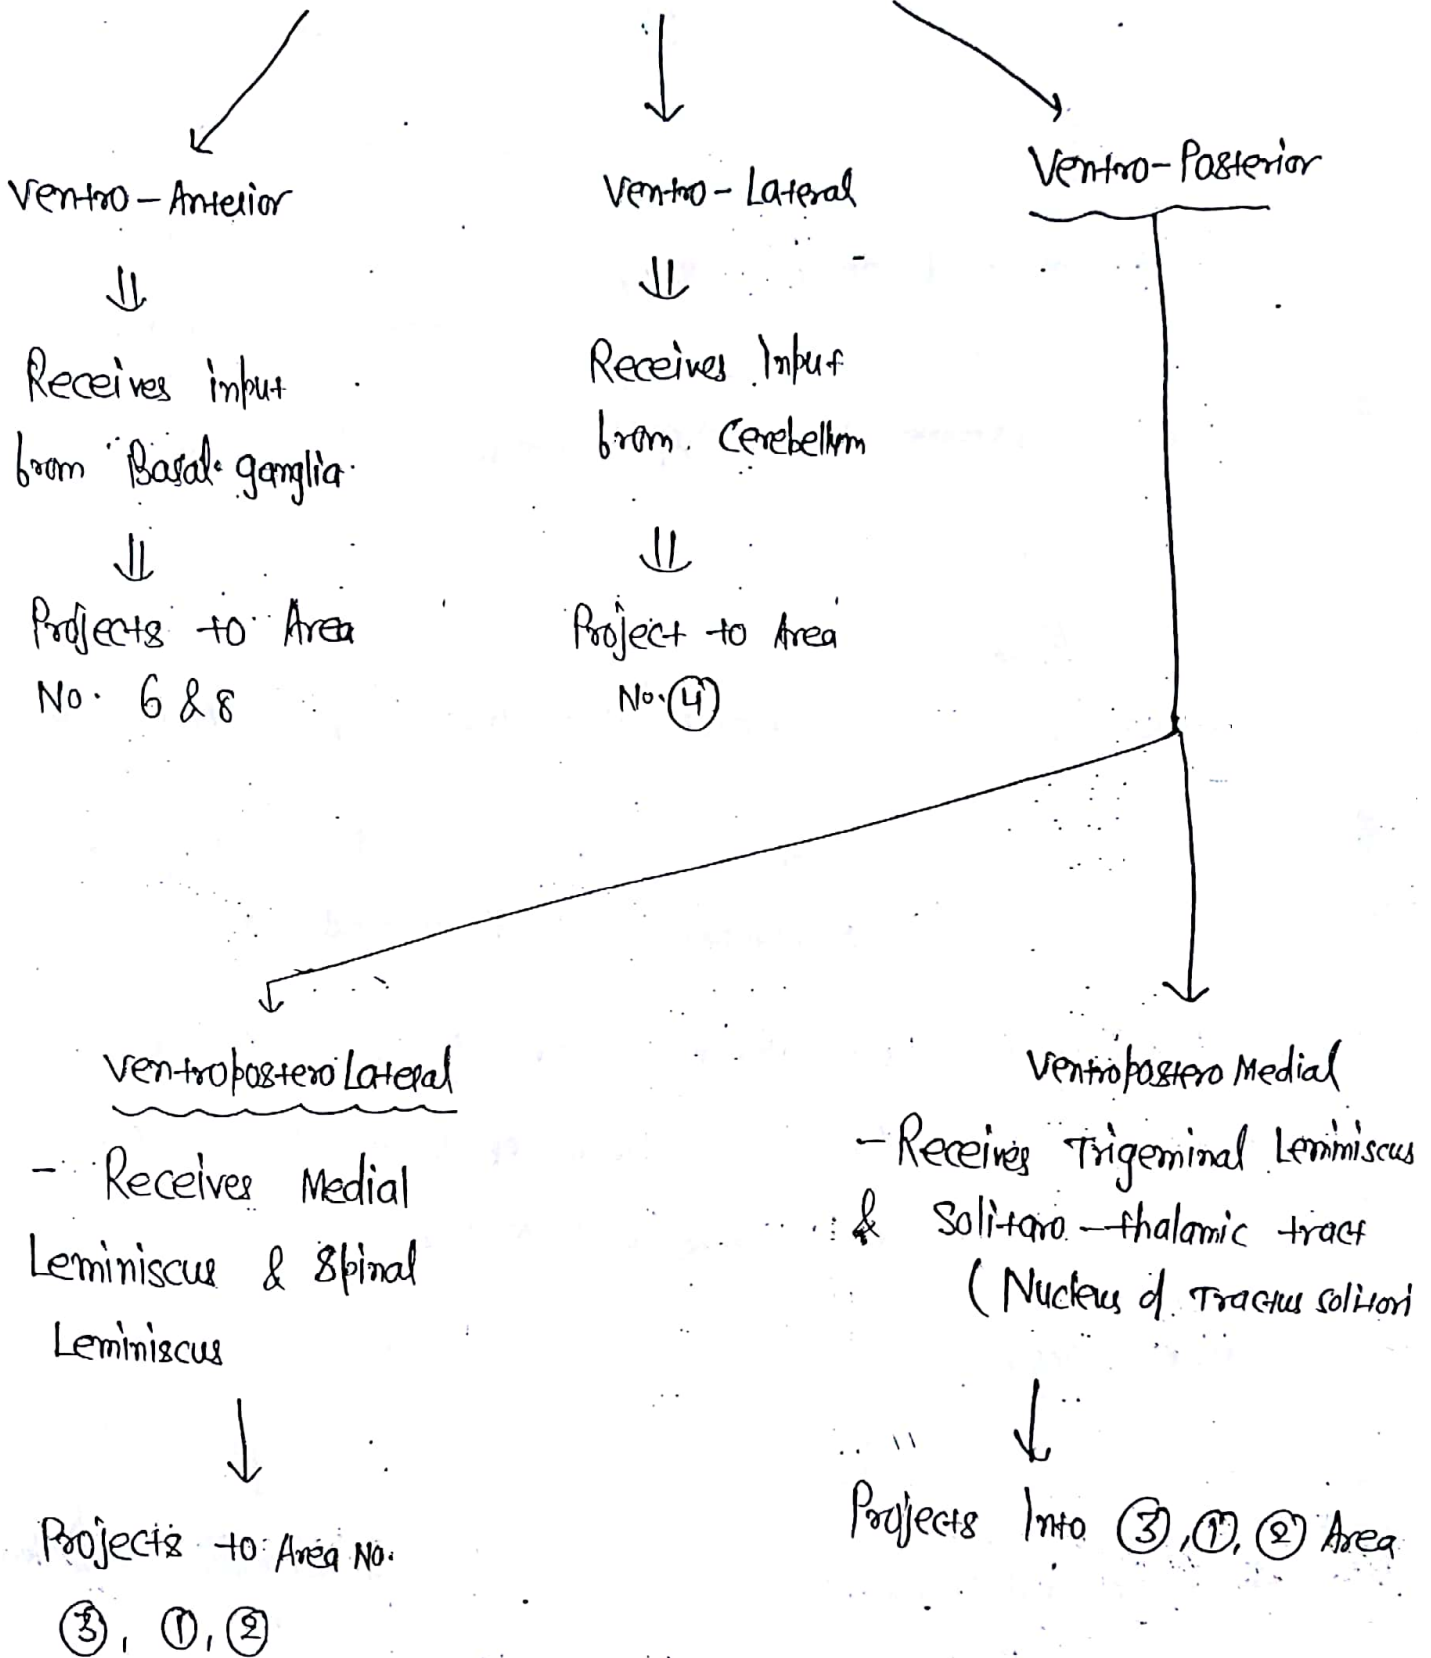 Ventro - Anterior
Receives input
from Basal ganglia
Projects to Area
No. 6 & 8
Ventro - Lateral
Receives Input
from Cerebellum
Project to Area
No. 4
Ventro - Posterior
Ventropostero Lateral
- Receives Medial
Leminiscus & Spinal
Leminiscus
Projects to Area No.
3, 1, 2
Ventropostero Medial
- Receives Trigeminal Leminiscus
& Solitaro - thalamic tract
(Nucleus of Tractus solitori
Projects Into 3, 1, 2 Area